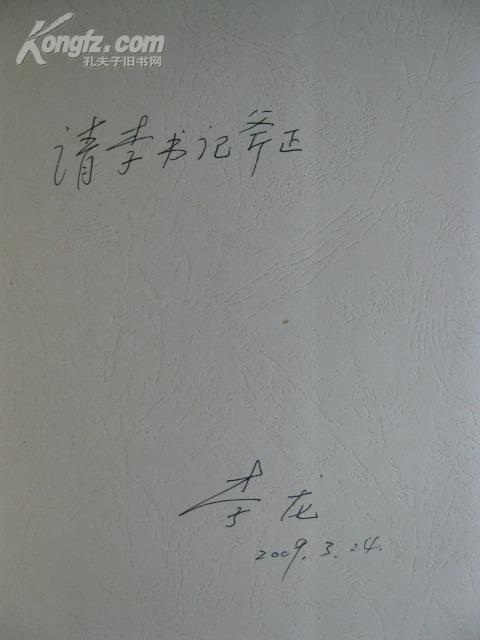 Kongfz.com
孔夫子旧书网
请李书记斧正
李龙
2009.3.24.